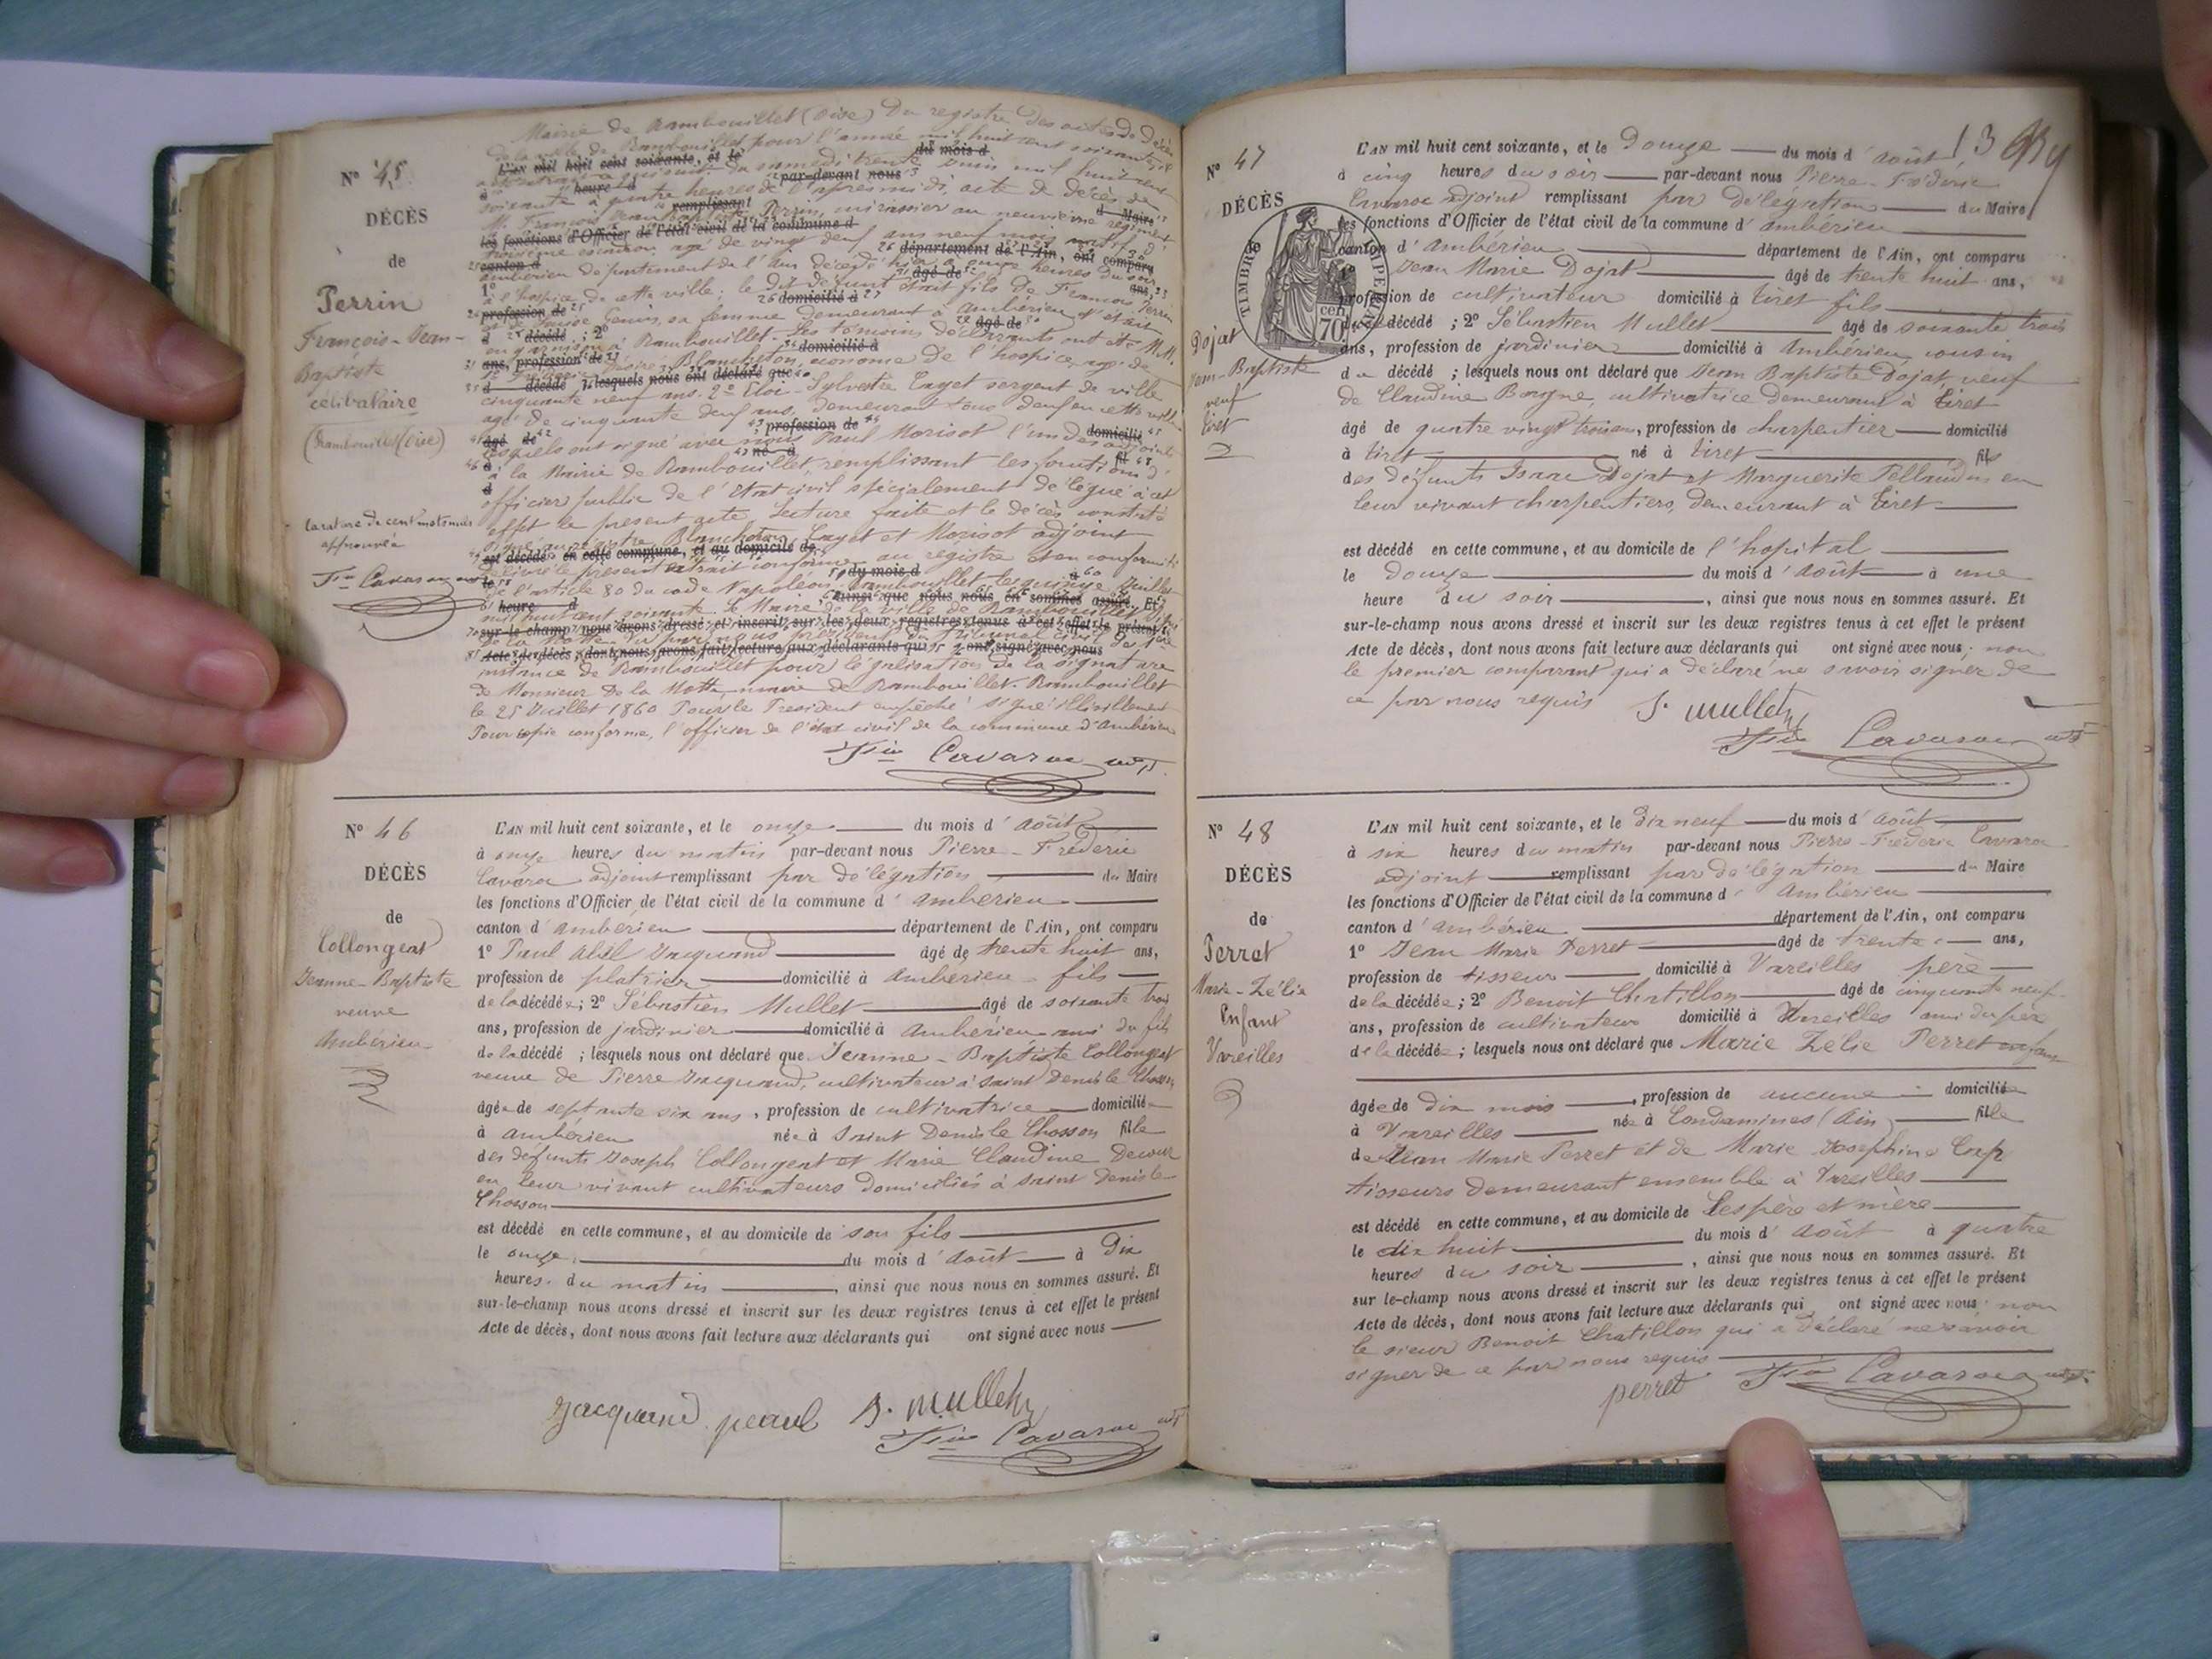 N° 45
DÉCÈS
de
Perrin
François-Jean-
Baptiste
célibataire
(Rambouillet (oise)
la rature de cent mots nuls
approuvée
Fric Cavaroc adjt
Mairie de Rambouillet (oise) Du registre des actes de Décès
de la ville de Rambouillet pour l'année mil huit cent soixante
L'AN mil huit cent soixante, et le du mois d
a été extrait ce qui suit: du samedi trente juin mil huit cent
à heure d par-devant nous
soixante à quatre heures de l'après midi, acte de décès de
remplissant d Maire
M. François Jean Baptiste Perrin, cuirassier au neuvième régiment,
les fonctions d'Officier de l'état civil de la commune d
troisième escadron agé de vingt deux ans neuf mois, natif d'
canton d département de l'Ain, ont comparu
ambérieu département de l'Ain décédé hier à onze heures du soir
1° âgé de ans,
à l'hospice de cette ville; le dit défunt était fils de François Perrin
profession de domicilié à
et de Louise Genus, sa femme demeurant à Ambérieu et était
d décédé ; 2° âgé de
en garnison à Rambouillet. Les témoins déclarants ont été M.M.
ans, profession de domicilié à
1° Désiré Blancheton, économe de l'hospice, agé de
d décédé ; lesquels nous ont déclaré que
cinquante neuf ans. 2° Eloi-Sylvestre Enget sergent de ville
agé de cinquante deux ans, demeurant tous deux en cette ville
âgé de profession de domicilié
lesquels ont signé avec nous Paul Morisot l'un des adjoints
à né à fil
à la Mairie de Rambouillet, remplissant les fonctions d'
d
officier public de l'Etat civil spécialement délégué à cet
effet le présent acte. Lecture faite et le décès constaté
signé au registre Blancheton, Enget et Morisot adjoint
est décédé en cette commune, et au domicile de
délivré le présent extrait conforme au registre et en conformité
le du mois d à
de l'article 80 du code Napoléon. Rambouillet le quinze Juillet
heure d , ainsi que nous nous en sommes assuré. Et
mil huit cent soixante. Le Maire de la ville de Rambouillet
sur-le-champ nous avons dressé et inscrit sur les deux registres tenus à cet effet le présent
de la Motte. Vu par nous président du tribunal civil de 1ère
Acte de décès, dont nous avons fait lecture aux déclarants qui ont signé avec nous
instance de Rambouillet pour légalisation de la signature
de Monsieur De la Motte, maire de Rambouillet. Rambouillet
le 25 Juillet 1860 Pour le President empêché signé illisiblement
Pour copie conforme, l'officier de l'état civil de la commune d'Ambérieu
Fric Cavaroc adjt
N° 46
DÉCÈS
de
Collongeat
Jeanne-Baptiste
veuve
Ambérieu
L'AN mil huit cent soixante, et le onze du mois d'Août
à onze heures du matin par-devant nous Pierre-Frédéric
Cavaroc adjoint remplissant par délégation du Maire
les fonctions d'Officier de l'état civil de la commune d'ambérieu
canton d'ambérieu département de l'Ain, ont comparu
1° Paul Abel Jacquand âgé de trente huit ans,
profession de platrier domicilié à Ambérieu fils
de la décédée; 2° Sébastien Mullet âgé de soixante trois
ans, profession de jardinier domicilié à Ambérieu ami du fils
de la décédé ; lesquels nous ont déclaré que Jeanne-Baptiste Collongeat
veuve de Pierre Jacquand, cultivateur à saint Denis le Chosson
âgée de septante six ans, profession de cultivatrice domiciliée
à ambérieu née à Saint Denis le Chosson fille
des défunts Joseph Collongeat et Marie Claudine Decour
en leur vivant cultivateurs domiciliés à saint Denis le
Chosson
est décédé en cette commune, et au domicile de son fils
le onze du mois d'Août à Dix
heures du matin , ainsi que nous nous en sommes assuré. Et
sur-le-champ nous avons dressé et inscrit sur les deux registres tenus à cet effet le présent
Acte de décès, dont nous avons fait lecture aux déclarants qui ont signé avec nous
jacquand paul S. mullet
Fric Cavaroc adjt
13
N° 47
DÉCÈS
TIMBRE IMPERIAL
cen 70
Dojat
Jean-Baptiste
veuf
Tiret
L'AN mil huit cent soixante, et le Douze du mois d'Août
à cinq heures du soir par-devant nous Pierre-Fréderic
Cavaroc adjoint remplissant par délégation du Maire
les fonctions d'Officier de l'état civil de la commune d'ambérieu
canton d'Ambérieu département de l'Ain, ont comparu
Jean Marie Dojat âgé de trente huit ans,
profession de cultivateur domicilié à tiret fils
du décédé ; 2° Sébastien Mullet âgé de soixante trois
ans, profession de jardinier domicilié à Ambérieu cousin
du décédé ; lesquels nous ont déclaré que Jean Baptiste Dojat, veuf
de Claudine Borgne, cultivatrice demeurant à Tiret
âgé de quatre vingt trois ans, profession de charpentier domicilié
à tiret né à tiret fils
des défunts Isaac Dojat et Marguerite Tellaudin en
leur vivant charpentiers, demeurant à Tiret
est décédé en cette commune, et au domicile de l'hopital
le douze du mois d'Août à une
heure du soir , ainsi que nous nous en sommes assuré. Et
sur-le-champ nous avons dressé et inscrit sur les deux registres tenus à cet effet le présent
Acte de décès, dont nous avons fait lecture aux déclarants qui ont signé avec nous; non
le premier comparant qui a déclaré ne savoir signer de
ce par nous requis S. mullet
Fric Cavaroc adjt
N° 48
DÉCÈS
de
Perret
Marie-Zélie
Enfant
Vareilles
L'AN mil huit cent soixante, et le Dix neuf du mois d'Août
à six heures du matin par-devant nous Pierre-Fréderic Cavaroc
adjoint remplissant par délégation du Maire
les fonctions d'Officier de l'état civil de la commune d'Ambérieu
canton d'ambérieu département de l'Ain, ont comparu
1° Jean Marie Perret âgé de trente ans,
profession de tisseur domicilié à Vareilles père
de la décédée; 2° Benoit Chatillon âgé de cinquante neuf
ans, profession de cultivateur domicilié à Vareilles ami du père
de la décédée; lesquels nous ont déclaré que Marie Zélie Perret enfant
âgée de dix mois , profession de aucune domiciliée
à Vareilles née à Condamines (Ain) fille
de Jean Marie Perret et de Marie Josephine Cap
tisseurs demeurant ensemble à Vareilles
est décédé en cette commune, et au domicile de Ses père et mère
le dix huit du mois d'Août à quatre
heures du soir , ainsi que nous nous en sommes assuré. Et
sur le-champ nous avons dressé et inscrit sur les deux registres tenus à cet effet le présent
Acte de décès, dont nous avons fait lecture aux déclarants qui ont signé avec nous; non
le sieur Benoit Chatillon qui a déclaré ne savoir
signer de ce par nous requis
perret Fric Cavaroc adjt